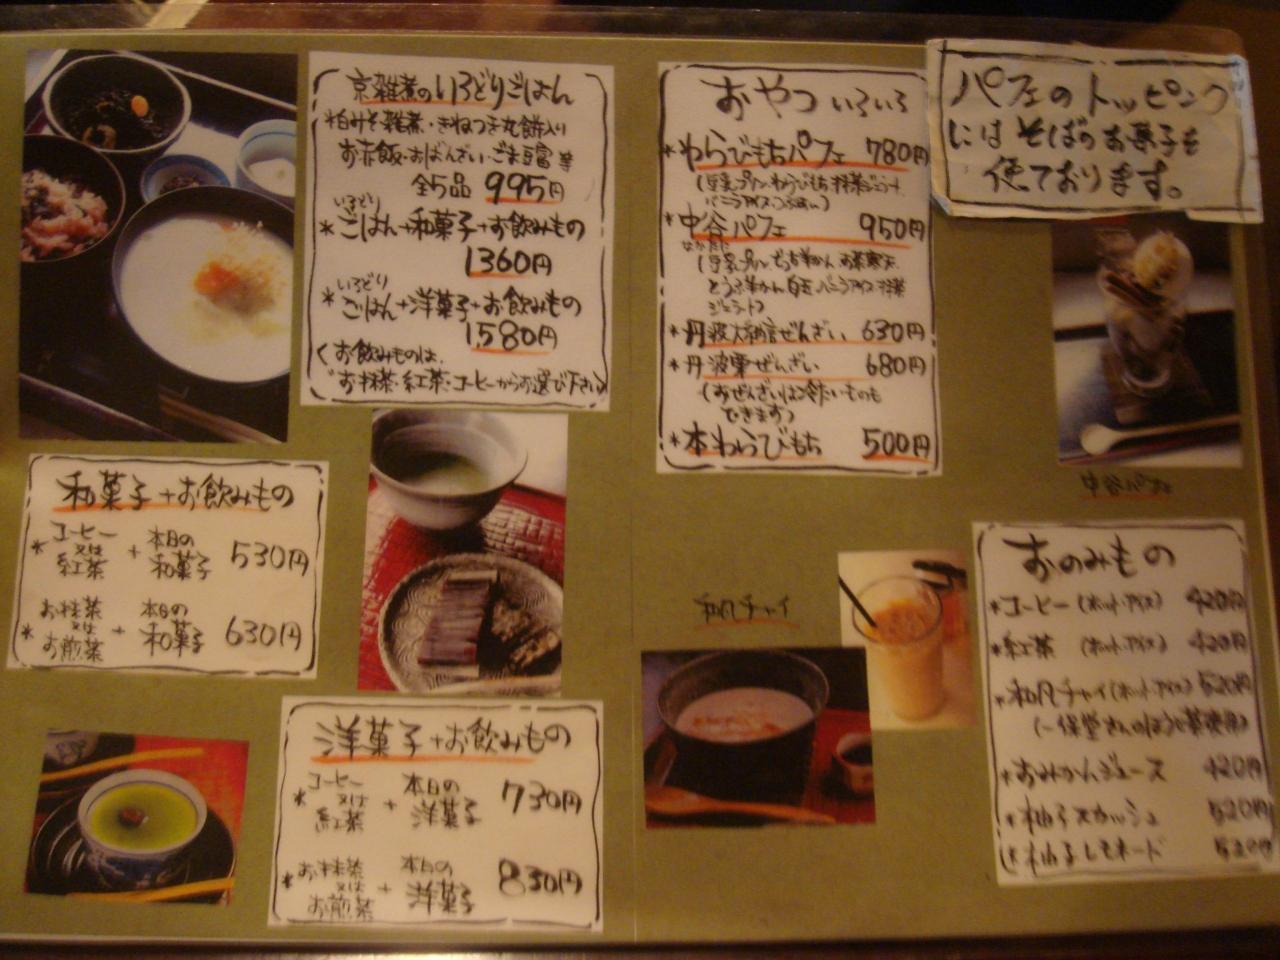 京雑煮のいろどりごはん
*白みそ雑煮・きねつき丸餅入り
お赤飯・おばんざい・ごま豆富 等
全5品 995円
いろどり
*ごはん+和菓子+お飲みもの
1360円
いろどり
*ごはん+洋菓子+お飲みもの
1,580円
お飲みものは、
お抹茶・紅茶・コーヒーからお選び下さい
和菓子+お飲みもの
コーヒー
*又は + 本日の和菓子 530円
紅茶
お抹茶
*又は + 本日の和菓子 630円
お煎茶
洋菓子+お飲みもの
コーヒー
*又は + 本日の洋菓子 730円
紅茶
お抹茶
*又は + 本日の洋菓子 830円
お煎茶
おやつ いろいろ
*わらびもちパフェ 780円
(豆乳プリン・わらびもち・抹茶ジェラート
バニラアイス・つぶあん)
*中谷パフェ 950円
なかたに
(豆乳プリン でっち羊かん お茶寒天
とうふ羊かん 白玉 バニラアイス 抹茶
ジェラート)
*丹波大納言ぜんざい 630円
*丹波栗ぜんざい 680円
(おぜんざいは冷たいものも
できます)
*本わらびもち 500円
パフェのトッピング
にはそばのお菓子も
使ております。
中谷パフェ
和風チャイ
おのみもの
*コーヒー(ホット・アイス) 420円
*紅茶(ホット・アイス) 420円
*和風チャイ(ホット・アイス) 520円
(一保堂さんのほうじ茶使用)
*おみかんジュース 420円
*柚子スカッシュ 520円
*柚子レモネード 520円